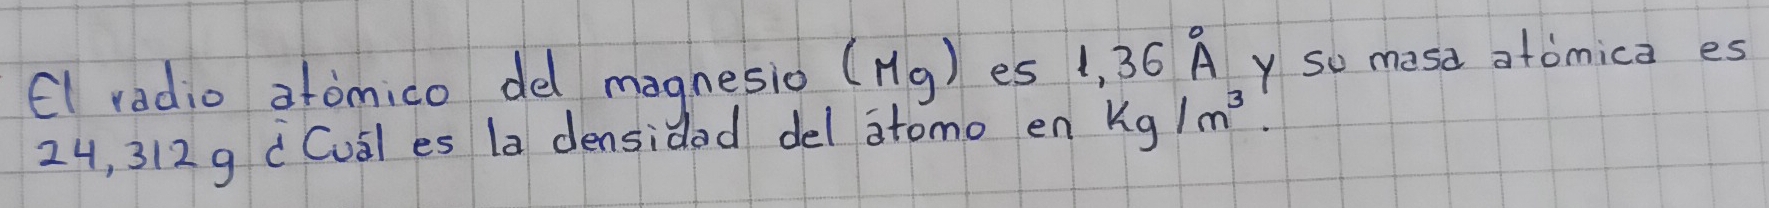 El radio atómico del magnesio (Mg) es 1,36 Å y su masa atómica es
24,312 g ¿Cuál es la densidad del átomo en Kg/m³.